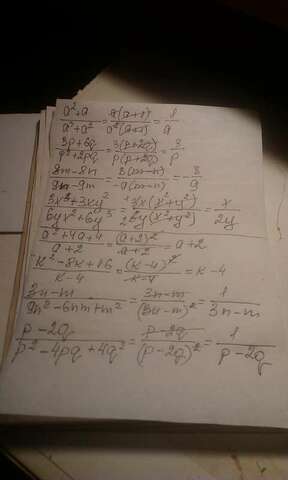 (a²+a)/(a³+a²) = a(a+1)/a²(a+1) = 1/a
(3p+6q)/(p²+2pq) = 3(p+2q)/p(p+2q) = 3/p
(8m-8n)/(9n-9m) = 8(m-n)/-9(m-n) = -8/9
(3x³+3xy²)/(6yx²+6y³) = 3x(x²+y²)/6y(x²+y²) = x/2y
(a²+4a+4)/(a+2) = (a+2)²/(a+2) = a+2
(k²-8k+16)/(k-4) = (k-4)²/(k-4) = k-4
(3n-m)/(9n²-6nm+m²) = (3n-m)/(3n-m)² = 1/(3n-m)
(p-2q)/(p²-4pq+4q²) = (p-2q)/(p-2q)² = 1/(p-2q)